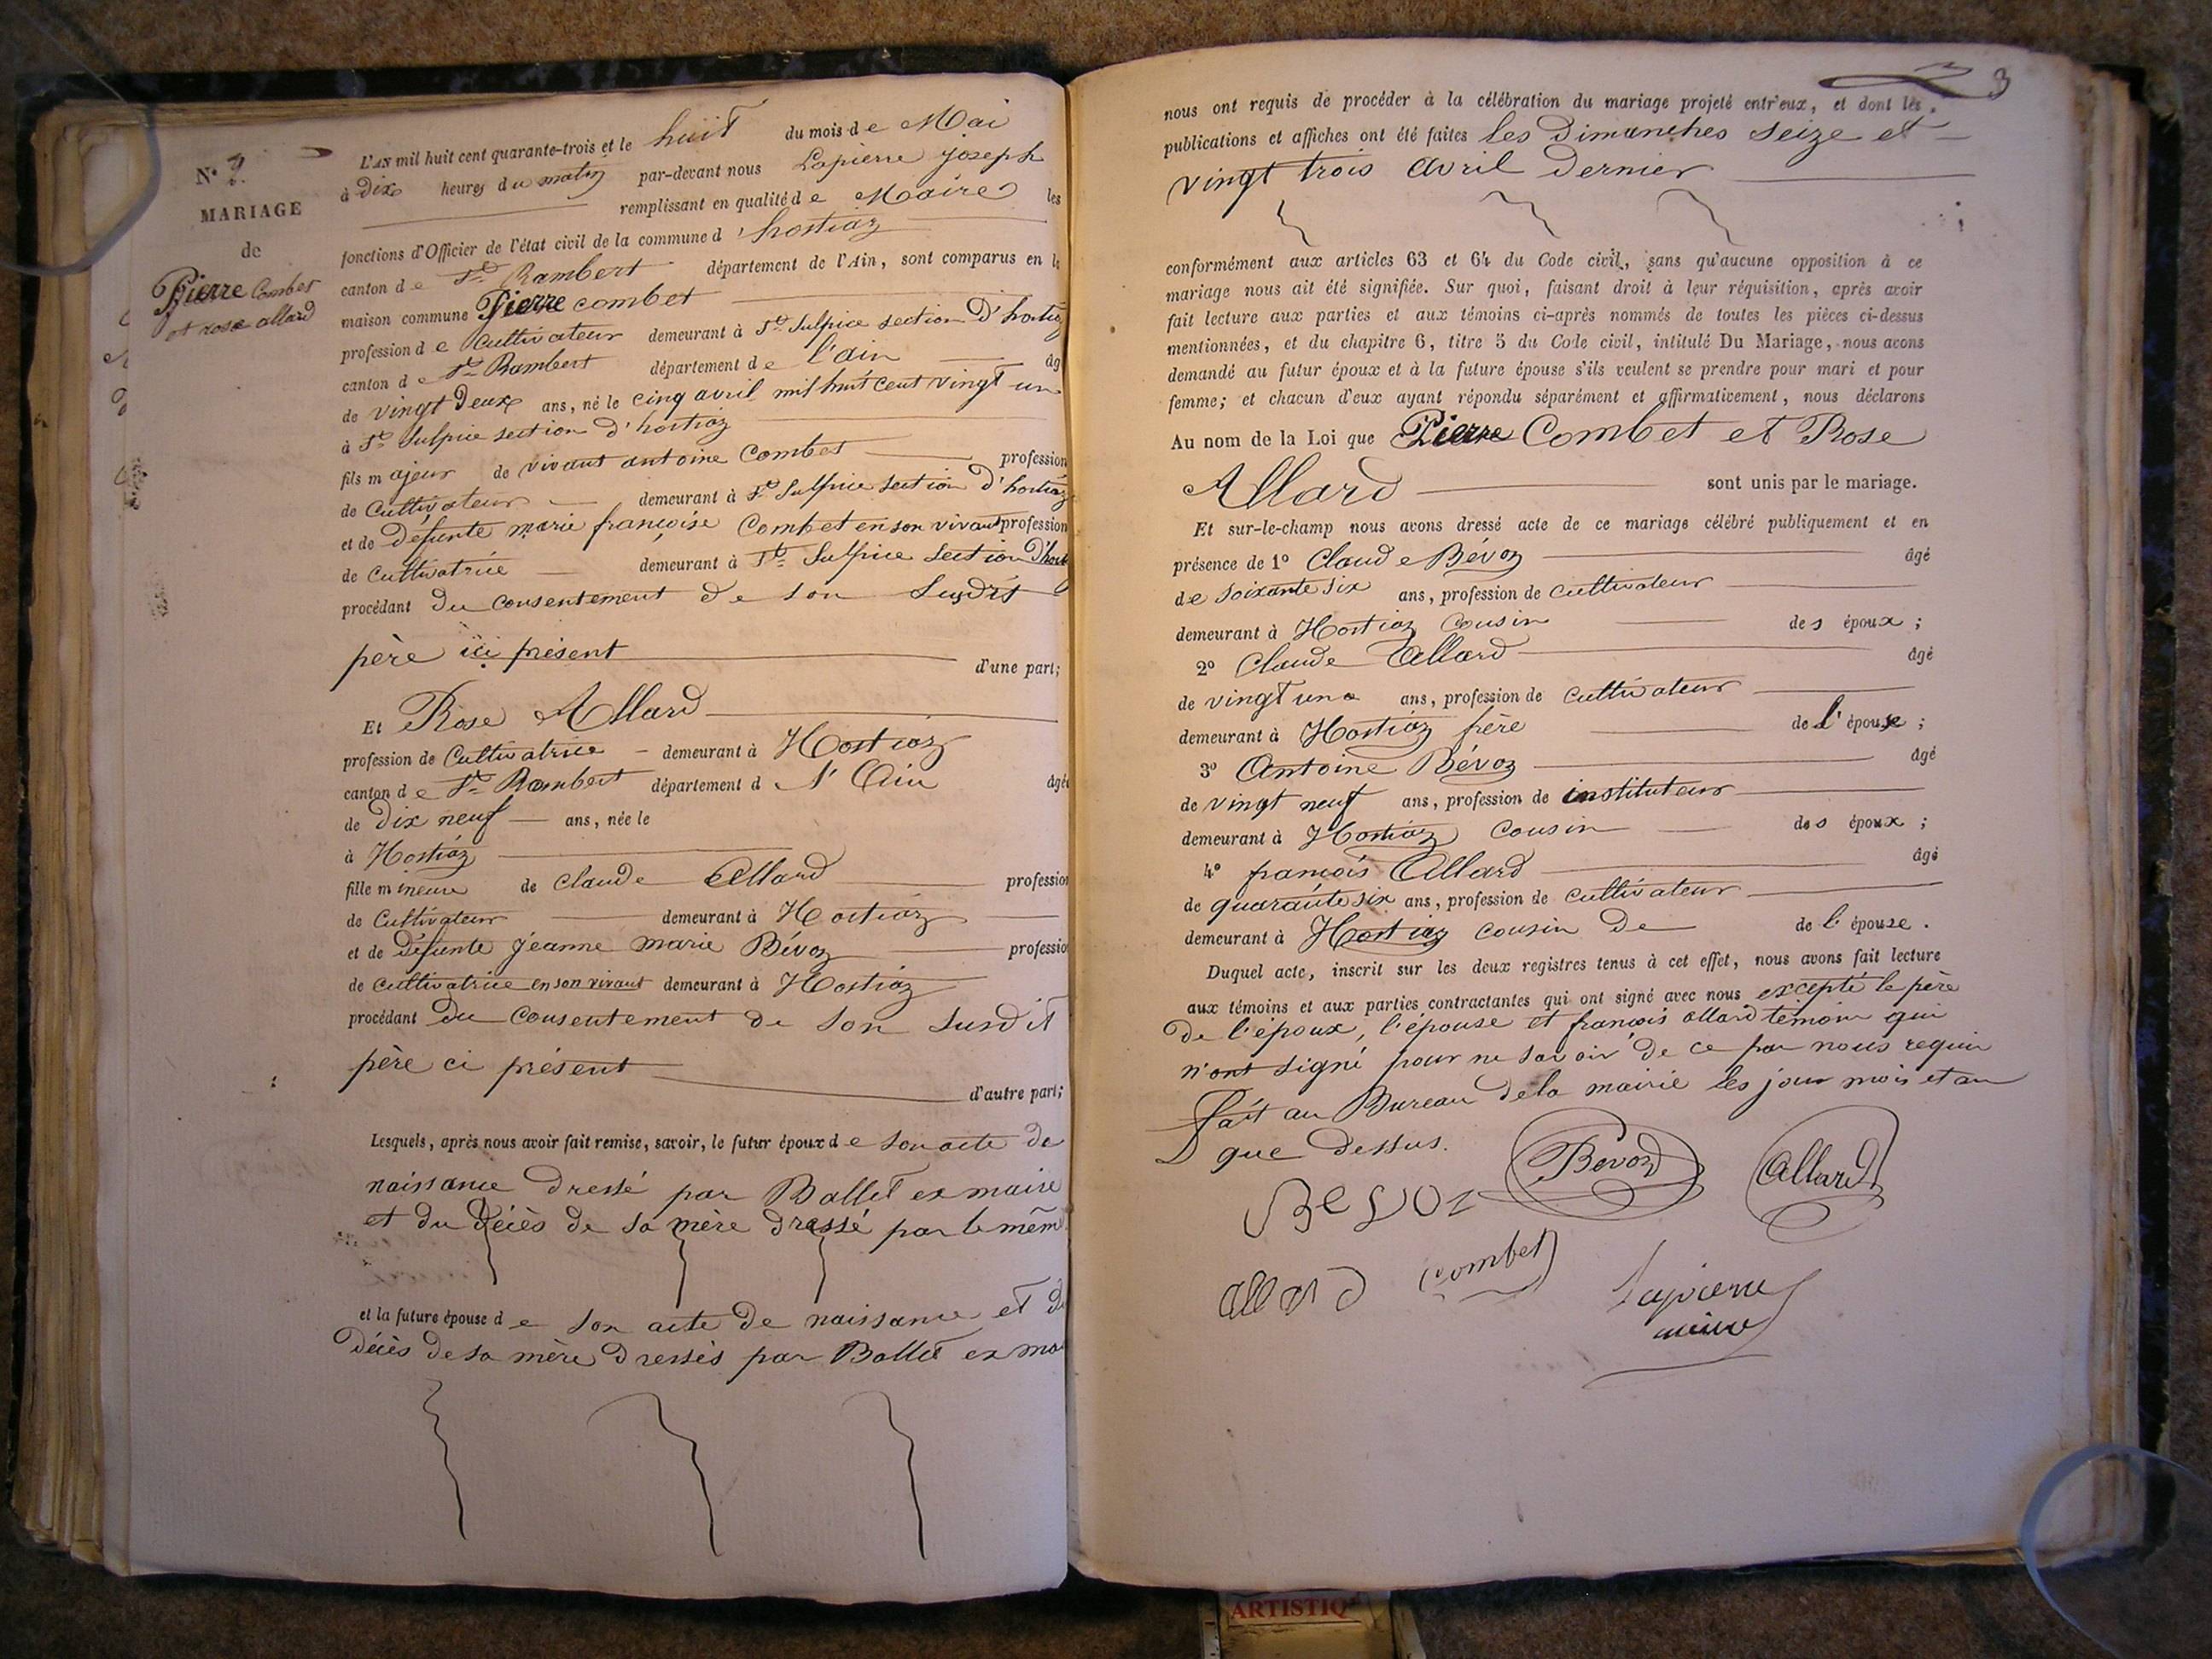 N° 2.
MARIAGE
de
Pierre Combet
et rose allard
L'AN mil huit cent quarante-trois et le huit du mois de Mai
à dix heures du matin par-devant nous Lapierre joseph
remplissant en qualité de Maire les
fonctions d'Officier de l'état civil de la commune d'hostiaz
canton de St Rambert département de l'Ain, sont comparus en la
maison commune Pierre combet
profession de Cultivateur demeurant à St Sulpice section d'hostiaz
canton de St Rambert département de l'ain âgé
de vingt deux ans, né le cinq avril mil huit cent vingt un
à St Sulpice section d'hostiaz
fils majeur de vivant antoine Combet profession
de Cultivateur demeurant à St Sulpice section d'hostiaz
et de défunte marie françoise Combet en son vivant profession
de Cultivatrice demeurant à St Sulpice section d'host
procédant du consentement de son susdit
père ici présent d'une part;
Et Rose Allard
profession de Cultivatrice demeurant à Hostiaz
canton de St Rambert département d l'Ain âgée
de dix neuf ans, née le
à Hostiaz
fille mineure de Claude Allard profession
de Cultivateur demeurant à Hostiaz
et de défunte jeanne marie Bévoz profession
de cultivatrice en son vivant demeurant à Hostiaz
procédant du consentement de son susdit
père ci présent
d'autre part;
Lesquels, après nous avoir fait remise, savoir, le futur époux de son acte de
naissance dressé par Ballet ex maire
et du décès de sa mère dressé par le même
et la future épouse de son acte de naissance et du
décès de sa mère dressés par Ballet ex mai
3
nous ont requis de procéder à la célébration du mariage projeté entr'eux, et dont les
publications et affiches ont été faites les dimanches seize et
vingt trois avril dernier
conformément aux articles 63 et 64 du Code civil, sans qu'aucune opposition à ce
mariage nous ait été signifiée. Sur quoi, faisant droit à leur réquisition, après avoir
fait lecture aux parties et aux témoins ci-après nommés de toutes les pièces ci-dessus
mentionnées, et du chapitre 6, titre 5 du Code civil, intitulé Du Mariage, nous avons
demandé au futur époux et à la future épouse s'ils veulent se prendre pour mari et pour
femme; et chacun d'eux ayant répondu séparément et affirmativement, nous déclarons
Au nom de la Loi que Pierre Combet et Rose
Allard sont unis par le mariage.
Et sur-le-champ nous avons dressé acte de ce mariage célébré publiquement et en
présence de 1° Claude Bévoz âgé
de soixante six ans, profession de cultivateur
demeurant à Hostiaz Cousin des époux;
2° Claude Allard âgé
de vingt un ans, profession de cultivateur
demeurant à Hostiaz frère de l'épouse;
3° Antoine Bévoz âgé
de vingt neuf ans, profession de instituteur
demeurant à Hostiaz Cousin des époux;
4° françois Allard âgé
de quarante six ans, profession de cultivateur
demeurant à Hostiaz cousin de de l'épouse.
Duquel acte, inscrit sur les deux registres tenus à cet effet, nous avons fait lecture
aux témoins et aux parties contractantes qui ont signé avec nous excepté le père
de l'époux, l'épouse et françois allard témoin qui
n'ont signé pour ne savoir de ce par nous requis
fait au Bureau de la mairie les jour mois et an
que dessus.
Bevoz Allard
Bevoz
allard Combet Lapierre
maire
ARTISTIQ